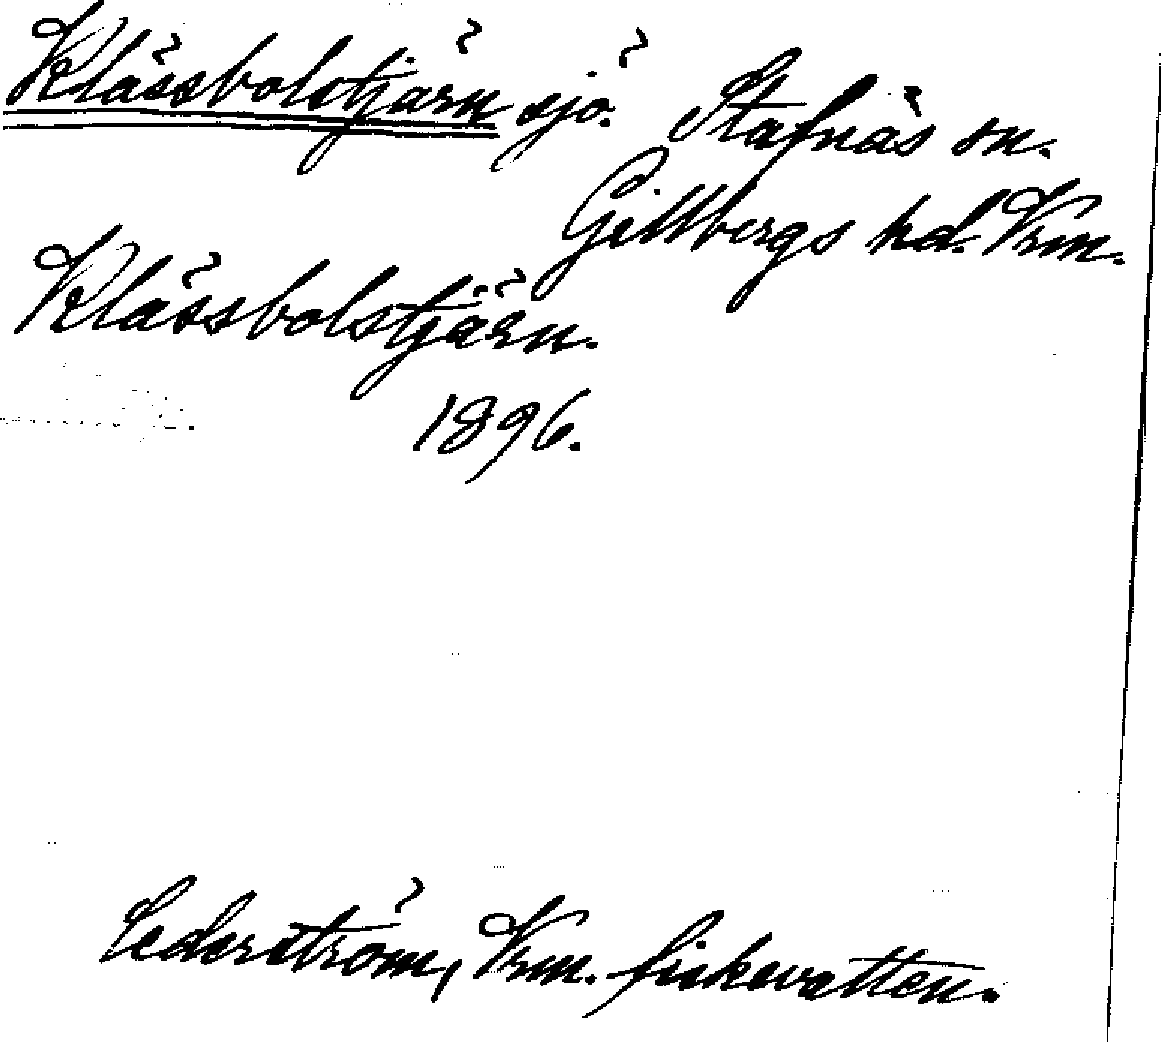 Klässbolstjärn sjö. Stafnäs sn.
Gillbergs hd. Vrm.
Klässbolstjärn.
1896.
Cederström, Vrm. fiskevatten.